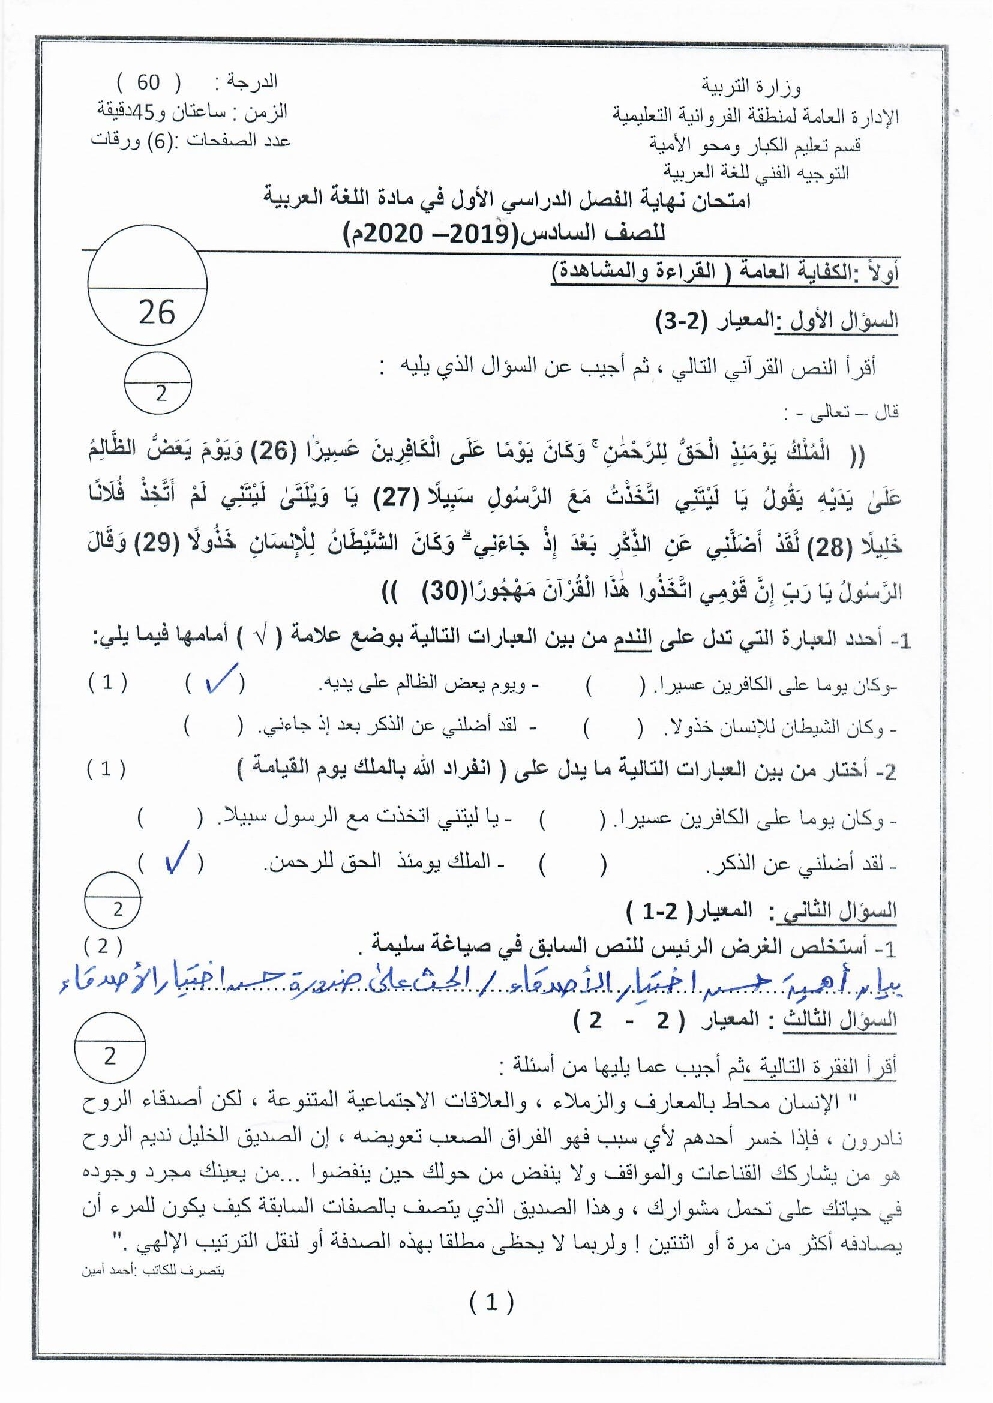 وزارة التربية
الدرجة : ( 60 )
الإدارة العامة لمنطقة الفروانية التعليمية
الزمن : ساعتان و45دقيقة
قسم تعليم الكبار ومحو الأمية
عدد الصفحات :(6) ورقات
التوجيه الفني للغة العربية
امتحان نهاية الفصل الدراسي الأول في مادة اللغة العربية
للصف السادس(2019– 2020م)
26
أولاً :الكفاية العامة ( القراءة والمشاهدة)
السؤال الأول :المعيار (2-3)
2
أقرأ النص القرآني التالي ، ثم أجيب عن السؤال الذي يليه :
قال – تعالى - :
(( الْمُلْكُ يَوْمَئِذٍ الْحَقُّ لِلرَّحْمَٰنِ ۚ وَكَانَ يَوْمًا عَلَى الْكَافِرِينَ عَسِيرًا (26) وَيَوْمَ يَعَضُّ الظَّالِمُ
عَلَىٰ يَدَيْهِ يَقُولُ يَا لَيْتَنِي اتَّخَذْتُ مَعَ الرَّسُولِ سَبِيلًا (27) يَا وَيْلَتَىٰ لَيْتَنِي لَمْ أَتَّخِذْ فُلَانًا
خَلِيلًا (28) لَّقَدْ أَضَلَّنِي عَنِ الذِّكْرِ بَعْدَ إِذْ جَاءَنِي ۗ وَكَانَ الشَّيْطَانُ لِلْإِنسَانِ خَذُولًا (29) وَقَالَ
الرَّسُولُ يَا رَبِّ إِنَّ قَوْمِي اتَّخَذُوا هَٰذَا الْقُرْآنَ مَهْجُورًا(30) ))
1- أحدد العبارة التي تدل على الندم من بين العبارات التالية بوضع علامة ( √ ) أمامها فيما يلي:
-وكان يوما على الكافرين عسيرا. ( ) - ويوم يعض الظالم على يديه. ( ✓ ) ( 1 )
- وكان الشيطان للإنسان خذولا. ( ) - لقد أضلني عن الذكر بعد إذ جاءني. ( )
2- أختار من بين العبارات التالية ما يدل على ( انفراد الله بالملك يوم القيامة ) ( 1 )
- وكان يوما على الكافرين عسيرا. ( ) - يا ليتني اتخذت مع الرسول سبيلا. ( )
- لقد أضلني عن الذكر. ( ) - الملك يومئذ الحق للرحمن. ( ✓ )
السؤال الثاني : المعيار( 2-1 )
2
1- أستخلص الغرض الرئيس للنص السابق في صياغة سليمة . ( 2 )
بيان أهمية حسن اختيار الأصدقاء / الحث على ضرورة حسن اختيار الأصدقاء
السؤال الثالث : المعيار ( 2 - 2 )
2
أقرأ الفقرة التالية ،ثم أجيب عما يليها من أسئلة :
" الإنسان محاط بالمعارف والزملاء ، والعلاقات الاجتماعية المتنوعة ، لكن أصدقاء الروح
نادرون ، فإذا خسر أحدهم لأي سبب فهو الفراق الصعب تعويضه ، إن الصديق الخليل نديم الروح
هو من يشاركك القناعات والمواقف ولا ينفض من حولك حين ينفضوا ...من يعينك مجرد وجوده
في حياتك على تحمل مشوارك ، وهذا الصديق الذي يتصف بالصفات السابقة كيف يكون للمرء أن
يصادفه أكثر من مرة أو اثنتين ! ولربما لا يحظى مطلقا بهذه الصدفة أو لنقل الترتيب الإلهي ."
بتصرف للكاتب :أحمد أمين
( 1 )